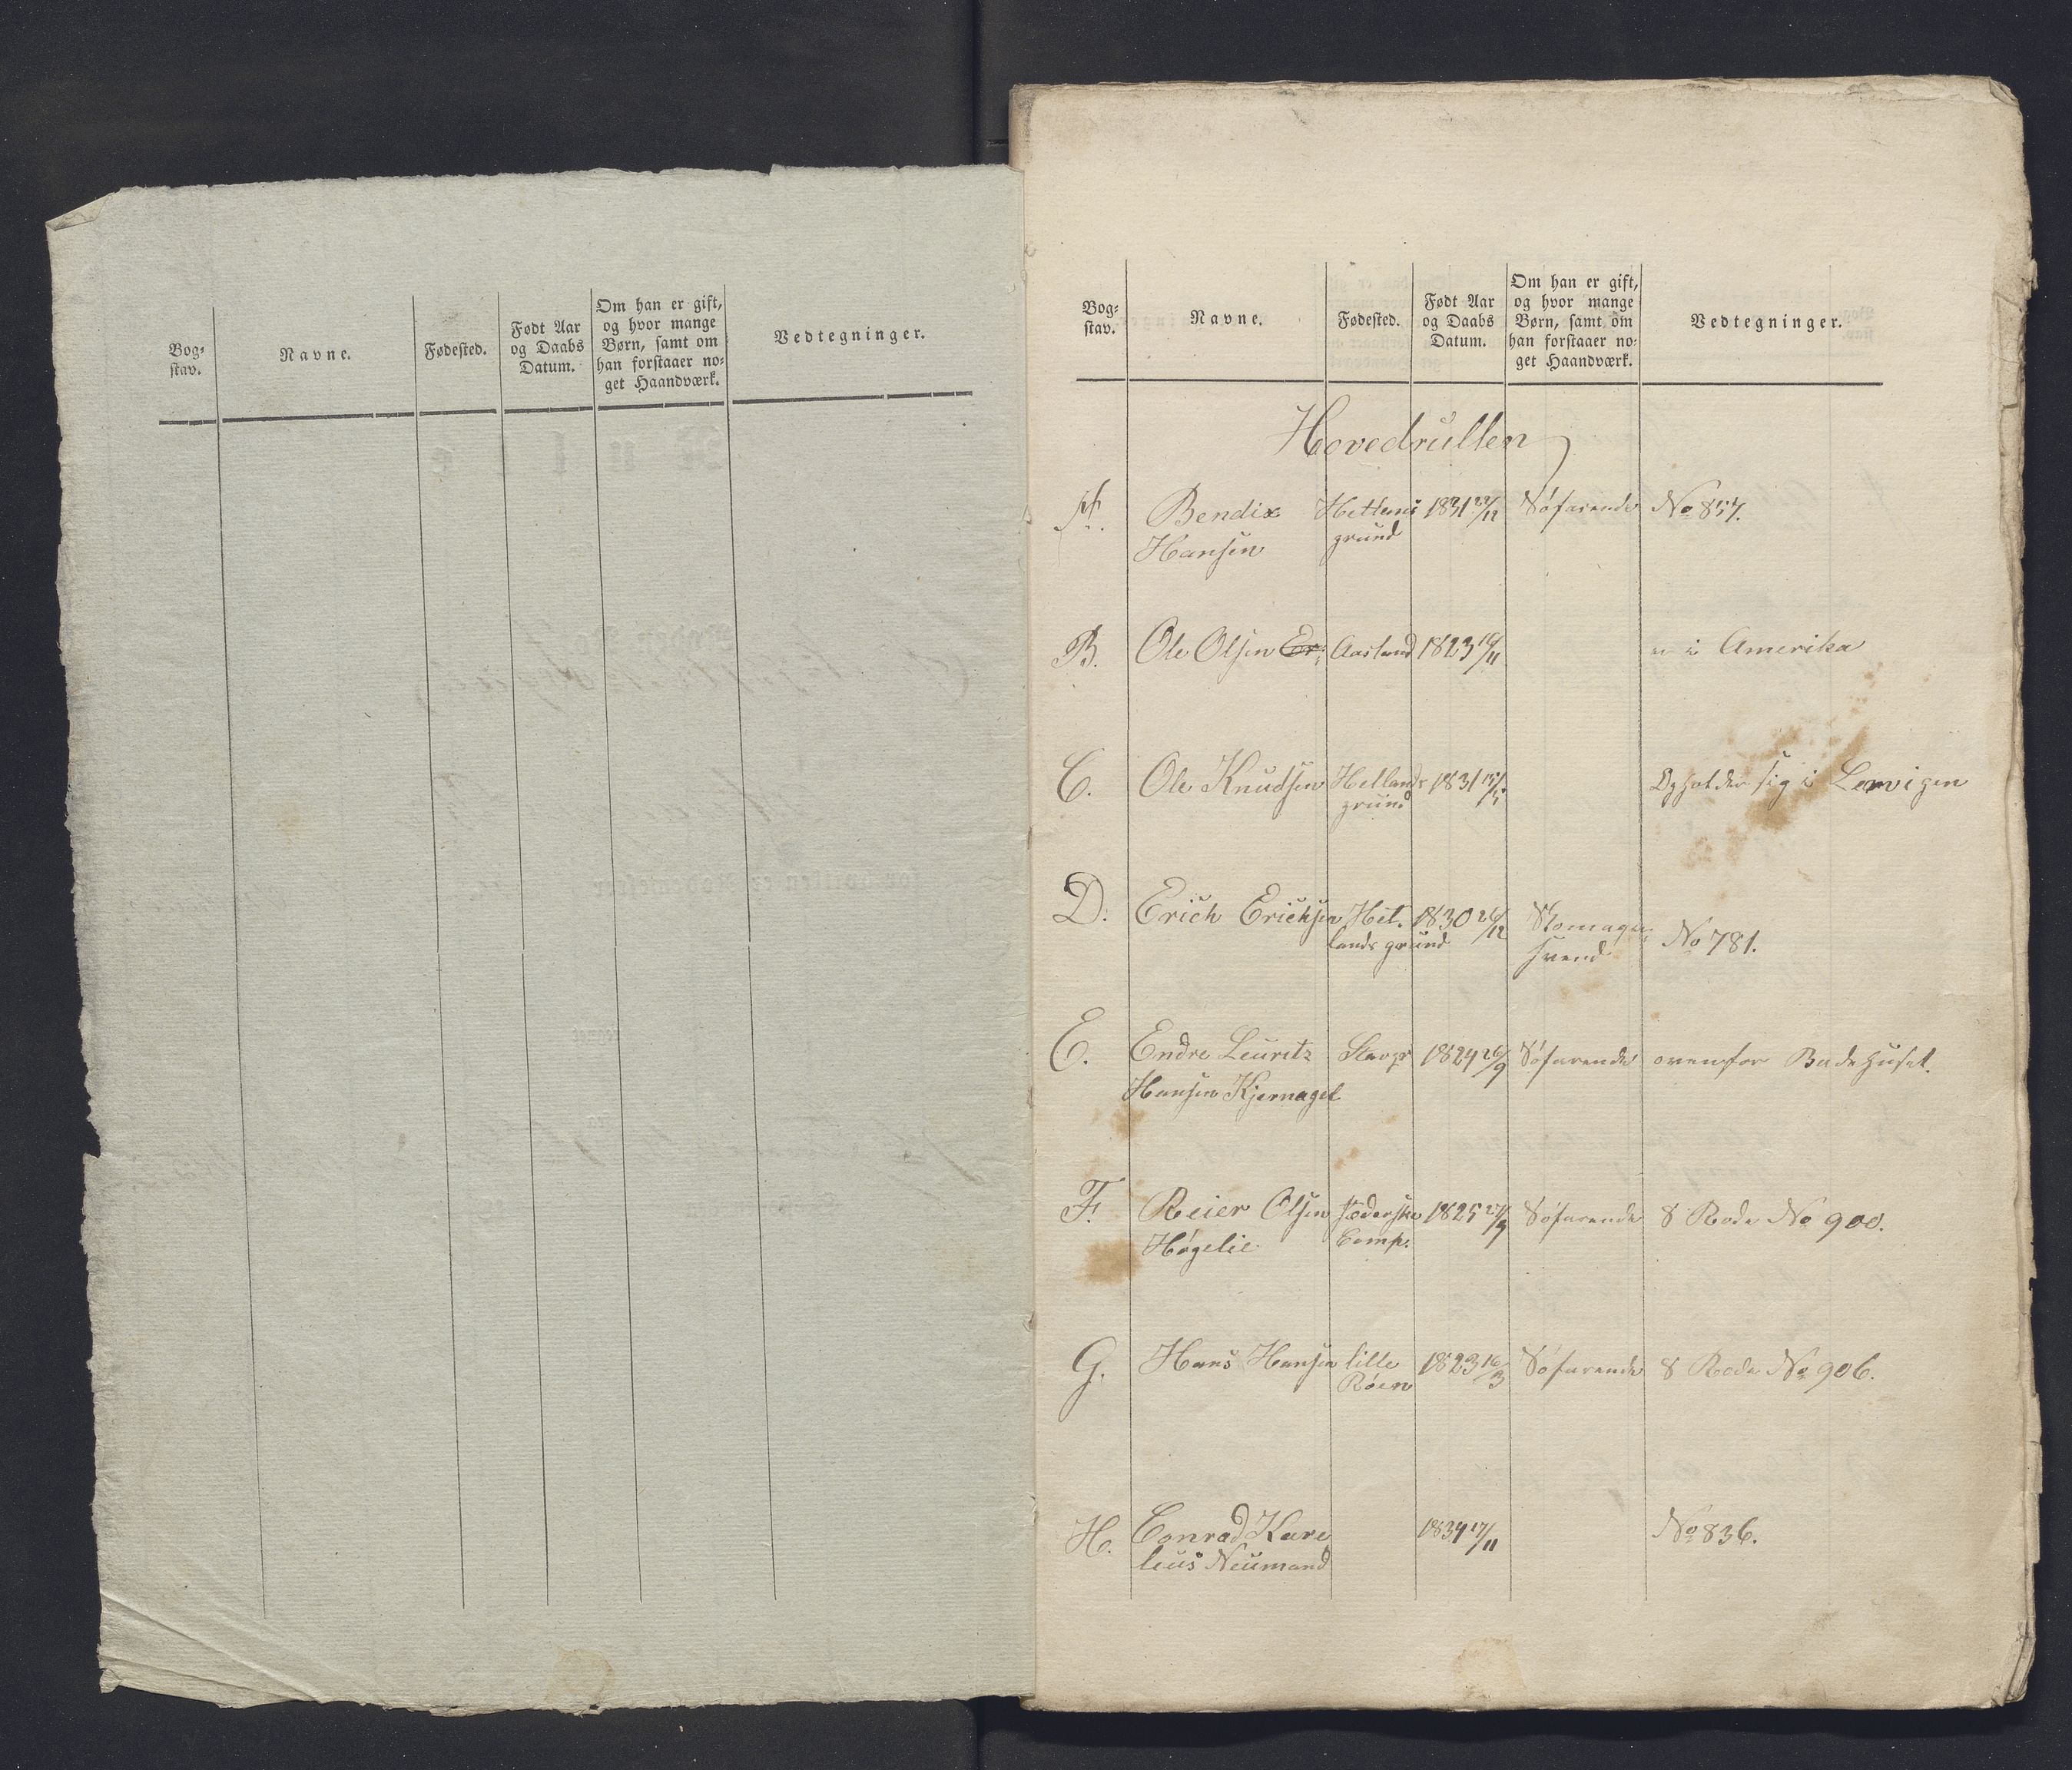 Bog-
stav.
Navne.
Fødested.
Født Aar
og Daabs
Datum.
Om han er gift,
og hvor mange
Børn, samt om
han forstaaer no-
get Haandværk.
Vedtegninger.
Bog-
stav.
Navne.
Fødested.
Født Aar
og Daabs
Datum.
Om han er gift,
og hvor mange
Børn, samt om
han forstaaer no-
get Haandværk.
Vedtegninger.
Hovedrullen
A. Bendix 1831 Søfarende No 857.
Hansen grund
B. Ole Olsen Er: Aasland 1823 i Amerika
C. Ole Knudsen Hellands 1831 Opholder sig i Lervigen
grund
D. Erich Erichsen Het. 1830 26/12 Skomager No 781.
lands grund svend
E. Endre Lauritz Stavgr 1824 26/9 Søfarende ovenfor Badehuset.
Hansen Kjernagel
F. Reier Olsen 1825 Søfarende 8 Rode No 900.
Høgelie Comp.
G. Hans Hansen lille 1823 16/3 Søfarende 8 Rode No 906.
Røen
H. Conrad Kare 1834 17/11 No 836.
lius Neumand